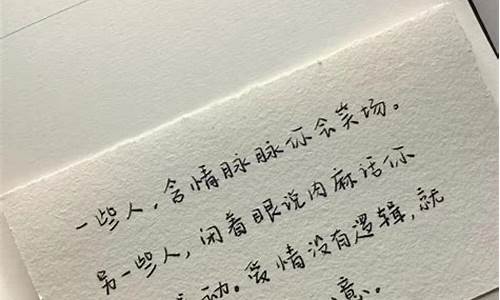 一些人，含情脉脉你会笑场。
另一些人，闭着眼说肉麻话你
动。爱情没有逻辑，就
意。